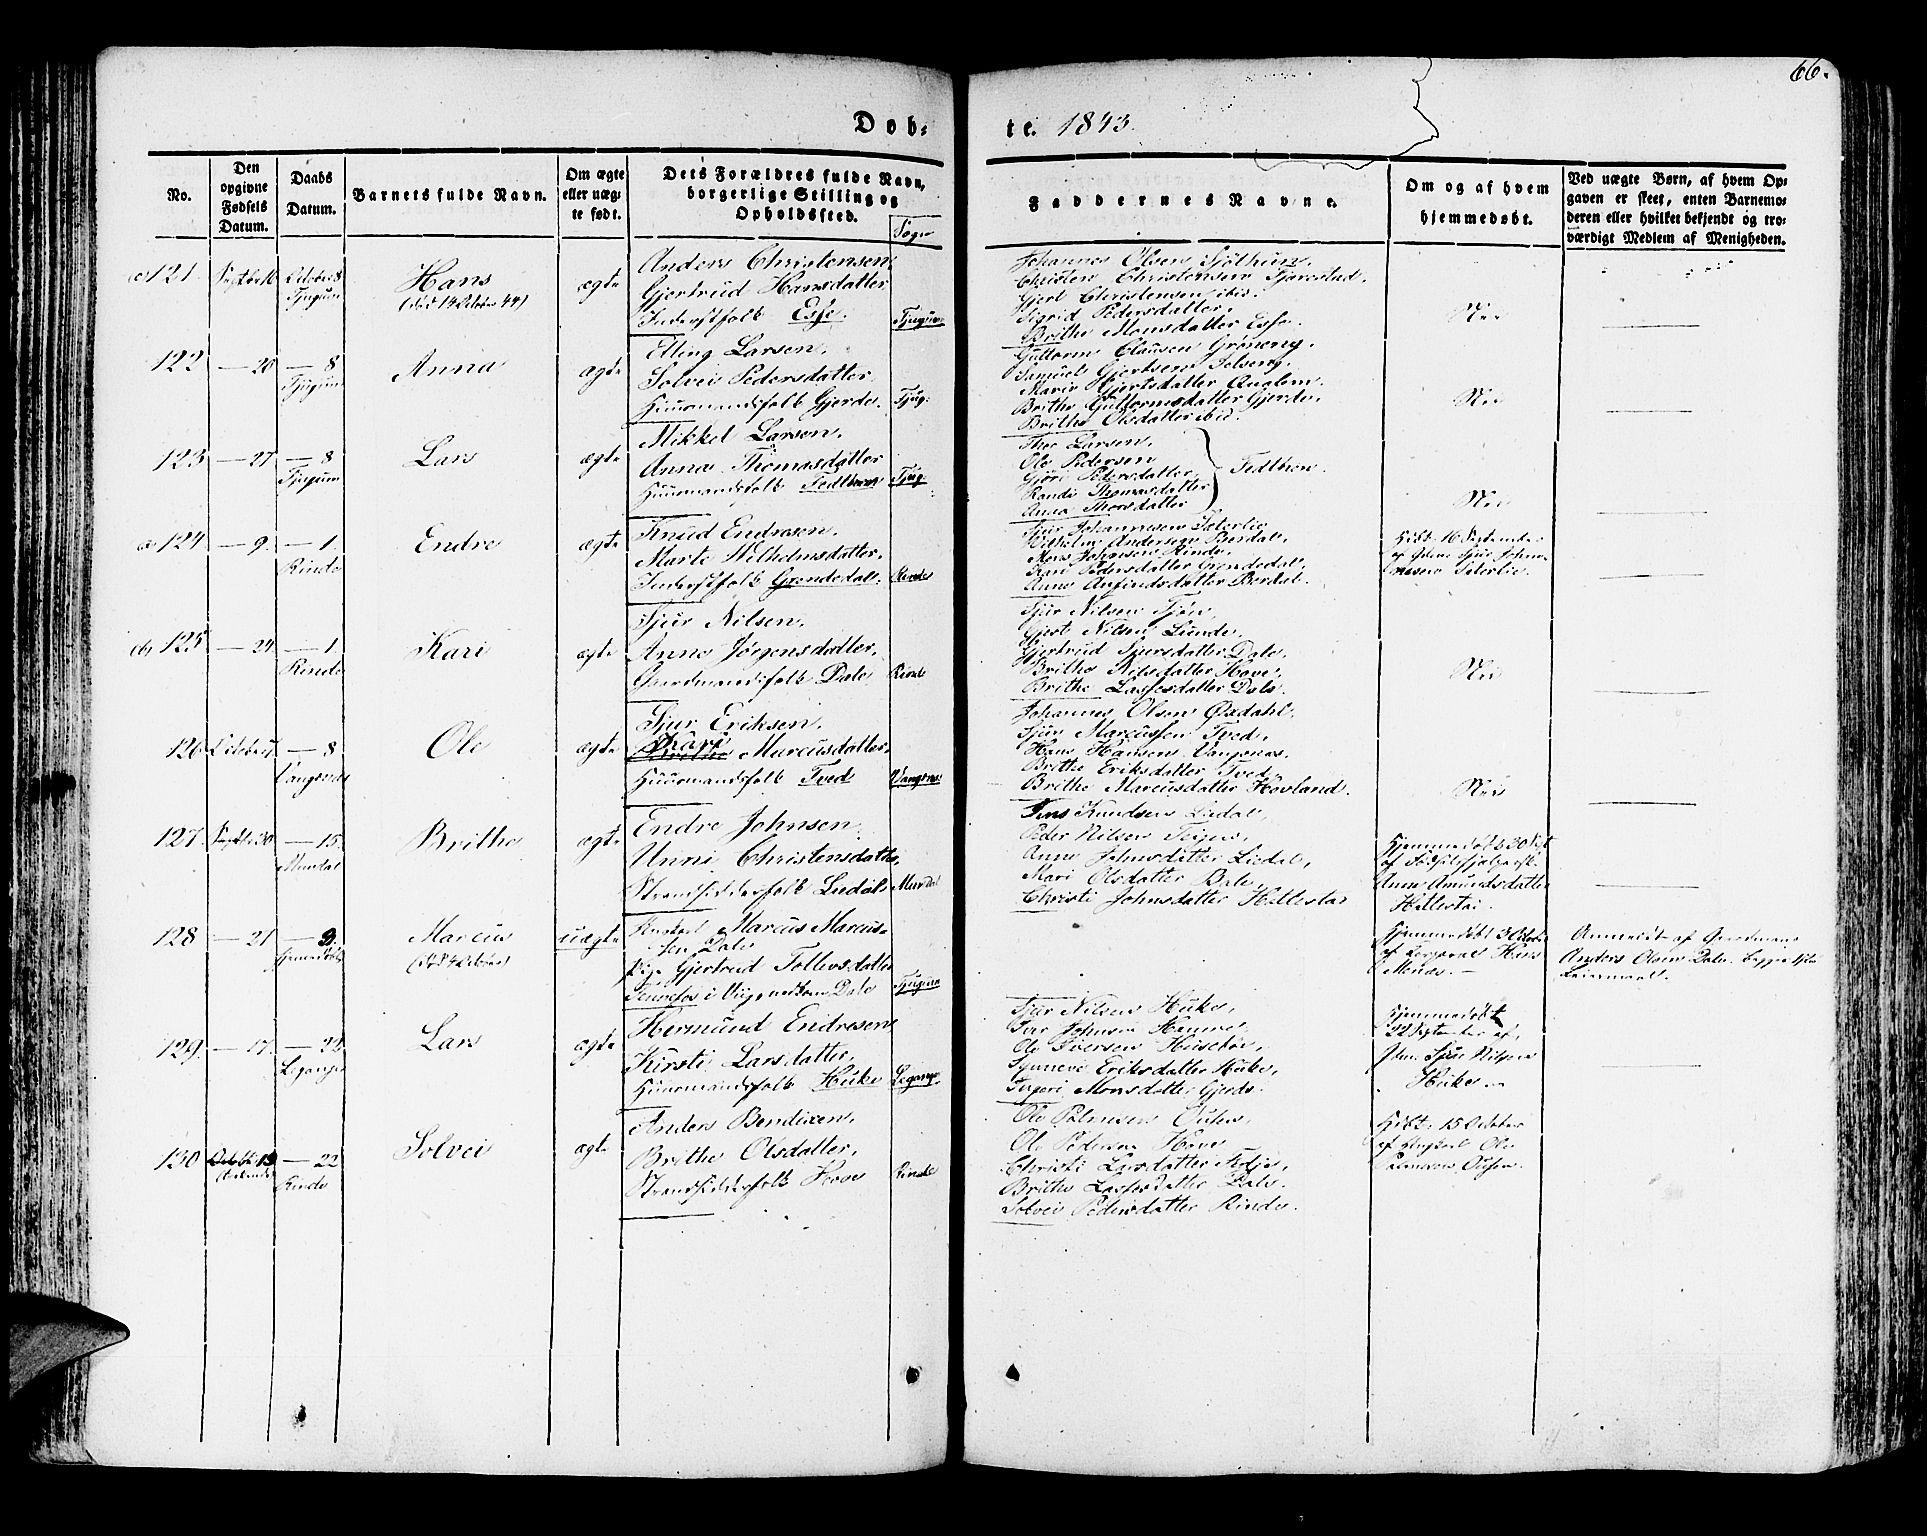 66.
Døb-
te. 1843.
No.
Den opgivne Fødsels Datum.
Daabs Datum.
Barnets fulde Navn.
Om ægte eller uæg-
te født.
Dets Forældres fulde Navn,
borgerlige Stilling og
Opholdssted.
Sogn
Faddernes Navne.
Om og af hvem
hjemmedøbt.
Ved uægte Børn, af hvem Op-
gaven er skeet, enten Barnemo-
deren eller hvilket bekjendt og tro-
værdigt Medlem af Menigheden.
121
Septbr 16
October 8
Tjugum
Hans
(død 14 October 44)
ægte
Anders Christensen
Gjertrud Hansdatter
Inderstfolk Esse.
Tjugum
Johannes Olsen
Christen Christensen
Gjert Christensen ibid.
Sigrid Pedersdatter,
Brithe Monsdatter Esse.
Nei
122
— 20
— 8
Tjugum
Anna
ægte
Elling Larsen,
Solvei Pedersdatter
Huusmandsfolk Gjerde.
Tjug.
Guttorm Clausen Grøneng.
Samuel Gjertsen
Marie Gjertsdatter Qualem.
Brithe Guttormsdatter Gjerde,
Brithe Olsdatter ibid.
Nei
123
— 27
— 8
Tjugum
Lars
ægte
Mikkel Larsen,
Anna Thomasdatter
Huusmandsfolk
Tjug.
Thor Larsen,
Ole Pedersen
Gjøri Pedersdatter
Randi Thomasdatter
Anna Thorsdatter
Nei
124
— 9.
— 1.
Rinde
Endre
ægte
Knud Endresen.
Marte Wilhelmsdatter,
Inderstfolk Grøndedal.
Rinde
Sjur Johannesen Sæterlie
Wilhelm Andersen Berdal,
Mons Johansen Rinde,
Kari Pedersdatter Grøndedal.
Anne Anfindsdatter Berdal.
Hdbt. 16 September
af Sjur Johan-
nesen Sæterlie.
125
— 24
— 1.
Rinde
Kari
ægte
Sjur Nilsen.
Anne Jørgensdatter,
Gaardmandsfolk Dale
Rinde
Sjur Nilsen
Gjert Nilsen Lunde.
Gjertrud Sjursdatter Dale,
Brithe Nilsdatter Hove,
Brithe Lassesdatter Dale.
Nei
126
October 1.
— 8
Vangsnæs
Ole
ægte
Sjur Eriksen,
Kari Marcusdatter
Huusmandsfolk Tved
Vangsnæs
Johannes Olsen
Sjur Marcussen Tved.
Hans Hansen Vangsnæs.
Brithe Eriksdatter Tved.
Brithe Marcusdatter Hovland.
Nei
127
Septbr 30
— 15.
Mundal
Brithe
ægte
Endre Johnsen
Unni Christensdatter,
Strandsidderfolk Lidal.
Mundal
Jens Knudsen Lidal,
Peder Nilsen Teigen,
Anne Johnsdatter Lidal,
Mari Olsdatter Bale,
Christi Johnsdatter Hillestad
Hjemmedøbt 30 Sept
af Fødselshjelpersk.
Anne Amundsdatter
Hillestad.
128
— 21
— 3.
Hjemmedøbt
Marcus
(død 4 October)
uægte
Ungkarl Marcus Marcus-
sen Dale
Pige Gjertrud Tollevsdatter
Dale
Tjugum
Hjemmedøbt 3 October
af Hans
Anmeldt af Gaardmand
Anders Olsen Dale.
129.
— 17.
— 22.
Leganger
Lars
ægte
Hermund Endresen
Kirsti Larsdatter,
Huusmandsfolk Huke
Legang.
Sjur Nilsen Huke,
Iver Johnsen Hamre,
Ole Iversen Husebøe,
Synneve Eriksdatter Huke,
Ingeri Monsdatter Gjerde.
Hjemmedøbt
22 September af
Sjur Nilsen
Huke.
130
— 22
Rinde
Solvei
ægte
Anders Bendixen,
Brithe Olsdatter,
Strandsidderfolk Hove
Rinde
Ole Palmesen
Ole Pedersen Hove
Christi Larsdatter
Brithe Lassesdatter Dale.
Solvei Pedersdatter Rinde.
Hdbt. 15 October
af Ungkarl Ole
Palmesen